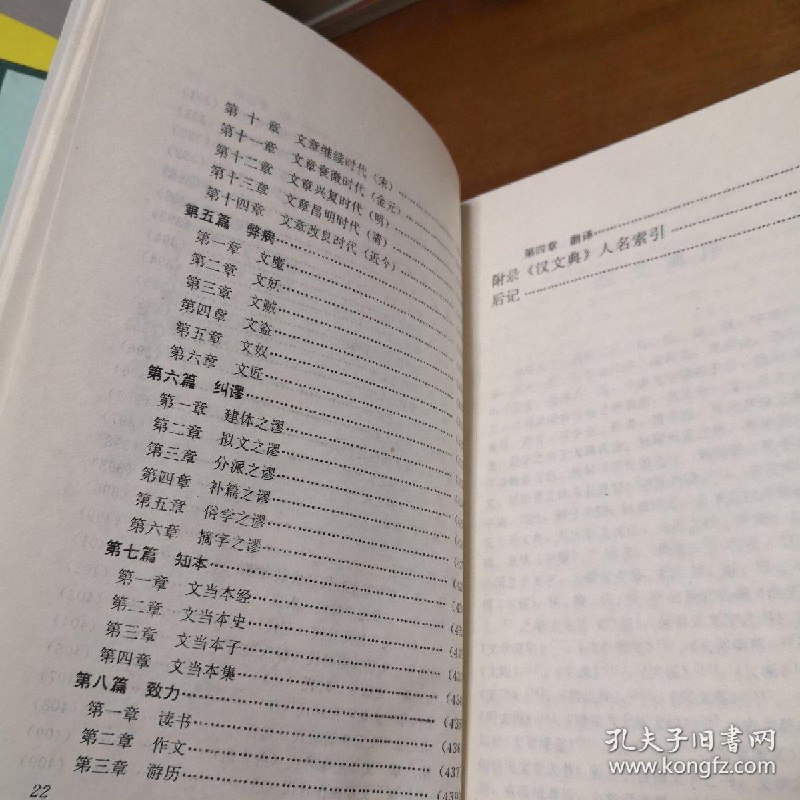 第十章 文章继续时代（宋）
第十一章 文章衰微时代（金元）
第十二章 文章兴复时代（明）
第十三章 文章昌明时代（清）
第十四章 文章改良时代（近今）
第五篇 弊病
第一章 文魔
第二章 文妖
第三章 文贼
第四章 文盗
第五章 文奴
第六章 文匠
第六篇 纠谬
第一章 建体之谬
第二章 拟文之谬
第三章 分派之谬
第四章 补篇之谬
第五章 俗字之谬
第六章 摭字之谬
第七篇 知本
第一章 文当本经
第二章 文当本史
第三章 文当本子
第四章 文当本集
第八篇 致力
第一章 读书
第二章 作文 (436
第三章 游历 (439
22
第四章 翻译
附录《汉文典》人名索引
后记
孔夫子旧书网
www.kongfz.com